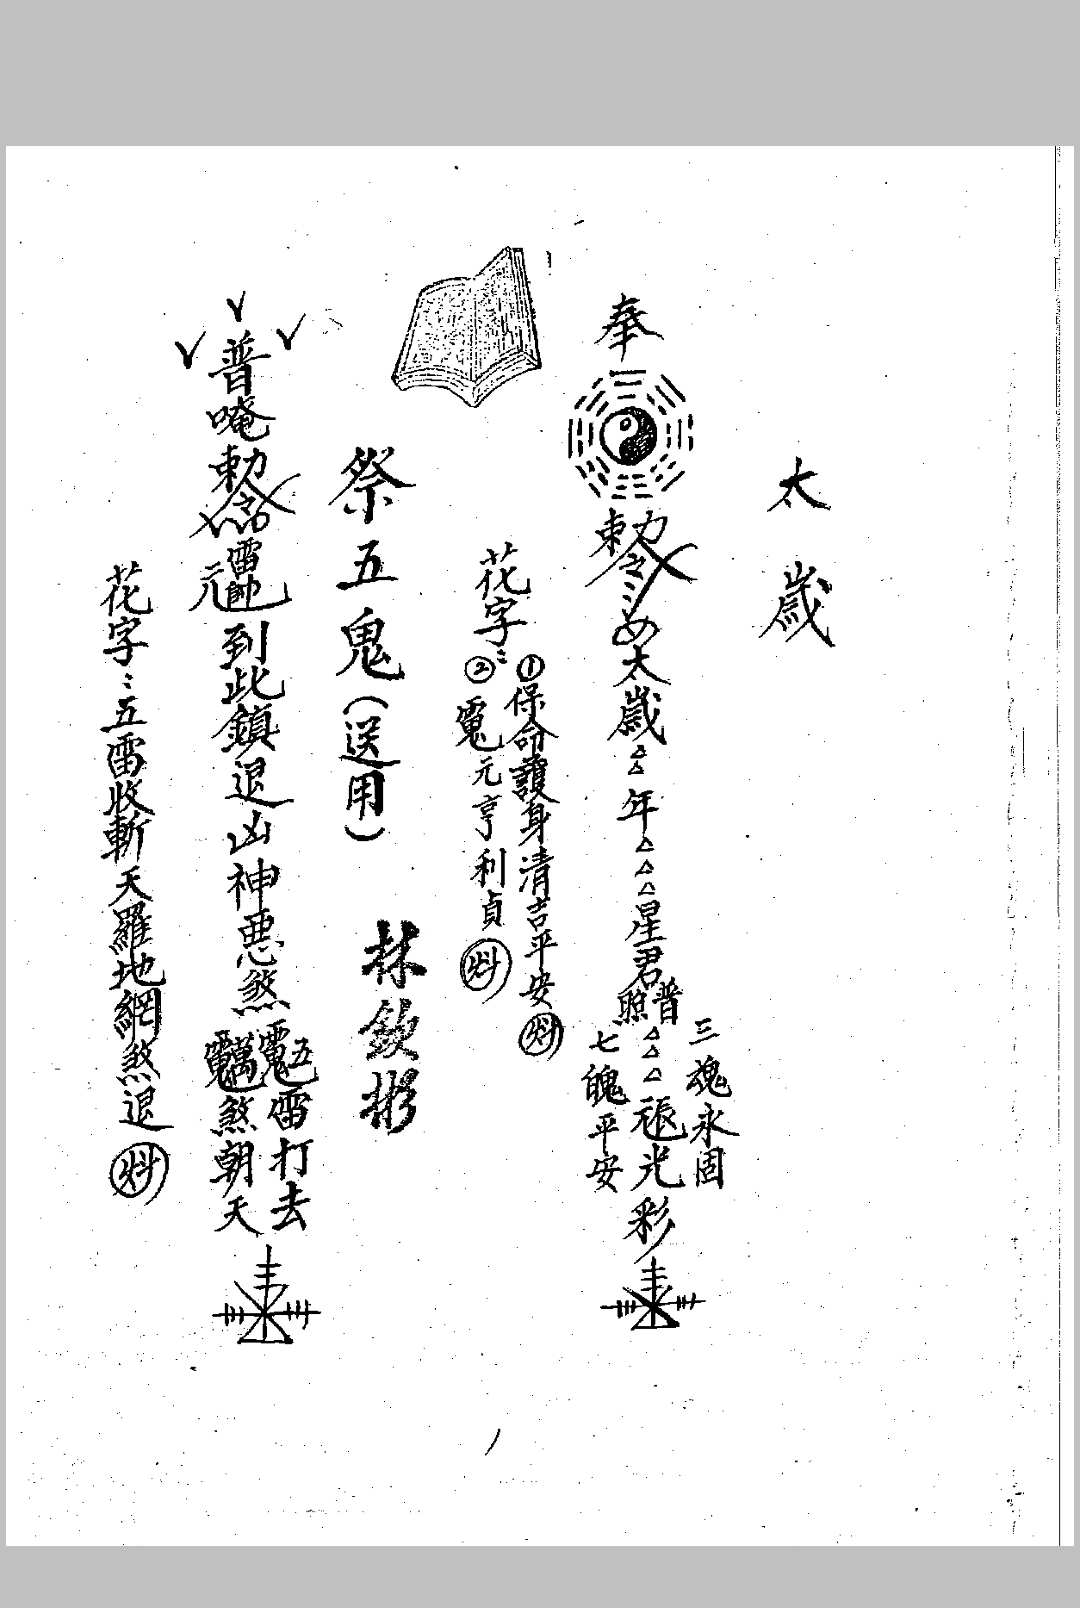 太歲
奉
勅
太歲
年
星君
普照
三魂永固
七魄平安
光彩
花字：
①保命護身清吉平安
② 元亨利貞
祭五鬼(送用)
林欽彬
普唵勅
雷
到此鎮退凶神惡煞
五雷打去
煞朝天
花字：五雷收斬天羅地網煞退